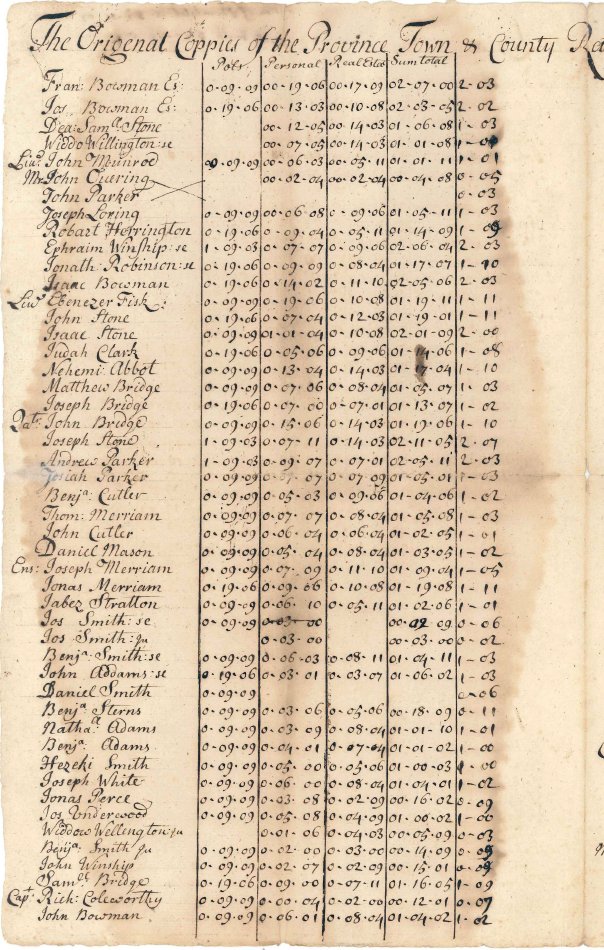 The Origenal Coppies of the Province Town & County
Personal Real Esta Sum total
Fran: Bowman Es: 0-09-09 00-19-06 00-17-09 02-07-00 2-03
Jos Bowman Es: 0-19-06 00-13-03 00-10-08 02-03-05 2-02
Dea: Saml. Stone 00-12-05 00-14-03 01-06-08 1-03
Widdo Willington: se 00-07-05 00-14-03 01-01-08
Liu: John Munrod 0-09-09 00-06-03 00-05-11 01-01-11 1-01
Mr John 00-02-04 00-02-04 00-04-08 0-05
John Parker 0-03
Joseph Loring 0-09-09 00-06-08 0-09-06 01-05-11 1-03
Robart Herrington 0-19-06 0-09-04 0-05-11 01-14-09
Ephraim Winship: se 1-09-03 0-07-07 0-09-06 02-06-04 2-03
Jonath Robinson: se 0-19-06 0-09-09 0-08-04 01-17-07 1-10
Isaac Bowman 0-19-06 0-14-02 0-11-10 02-05-06 2-03
Liu Ebenezer Fisk: 0-09-09 0-19-06 0-10-08 01-19-11 1-11
John Stone 0-19-06 0-07-04 0-12-03 01-19-01 1-11
Isaac Stone 0-09-09 1-01-04 0-10-08 02-01-09 2-00
Judah Clark 0-19-06 0-05-06 0-09-06 01-14-06 1-08
Nehemi: Abbot 0-09-09 0-13-04 0-14-03 01-17-04 1-10
Matthew Bridge 0-09-09 0-07-06 0-08-04 01-05-07 1-03
Joseph Bridge 0-19-06 0-07-00 0-07-01 01-13-07 1-02
John Bridge 0-09-09 0-15-06 0-14-03 01-19-06 1-10
Joseph Stone 1-09-03 0-07-11 0-14-03 02-11-05 2-07
Andrew Parker 1-09-03 0-09-07 0-07-01 02-05-11 2-03
Josiah Parker 0-09-09 0-07-09 01-05-01 1-03
Benja: Cutler 0-09-09 0-05-03 0-09-06 01-04-06 1-02
Thom: Merriam 0-09-09 0-07-07 0-08-04 01-05-08 1-03
John Cutler 0-09-09 0-06-04 0-06-04 01-02-05 1-01
Daniel Mason 0-09-09 0-05-04 0-08-04 01-03-05 1-02
Ens: Joseph Merriam 0-09-09 0-07-09 0-11-10 01-09-04 1-05
Jonas Merriam 0-19-06 0-09-06 0-10-08 01-19-08 1-11
Jabez Stratton 0-09-09 0-06-10 0-05-11 01-02-06 1-01
Jos Smith: se 0-09-09 0-03-00 00-12-09 0-06
Jos Smith: ju 0-03-00 00-03-00 0-02
Benja: Smith: se 0-09-09 0-06-03 0-08-11 01-04-11 1-03
John Addams: se 0-19-06 0-03-01 0-03-07 01-06-02 1-03
Daniel Smith 0-09-09 0-06
Benja: Sterns 0-09-09 0-03-06 0-05-06 00-18-09 0-11
Natha: Adams 0-09-09 0-03-09 0-08-04 01-01-10 1-01
Benja: Adams 0-09-09 0-04-01 0-07-04 01-01-02 1-00
Hezeki Smith 0-09-09 0-05-00 0-05-06 01-00-03 1-00
Joseph White 0-09-09 0-06-00 0-08-04 01-04-01 1-02
Jonas Perce 0-09-09 0-03-08 0-02-09 00-16-02 0-09
Jos Underwood 0-09-09 0-05-08 0-04-09 01-00-02 1-00
Widdow Wellengton: ju 0-01-06 0-04-03 00-05-09 0-03
Benja: Smith Ju 0-09-09 0-02-00 0-03-00 00-14-09
John Winship 0-09-09 0-02-07 0-02-09 00-15-01
Saml: Bridge 0-19-06 0-09-00 0-07-11 01-16-05 1-09
Capt Rich: Coleworthy 0-09-09 0-00-04 0-02-00 00-12-01 0-07
John Bowman 0-09-09 0-06-01 0-08-04 01-04-02 1-02